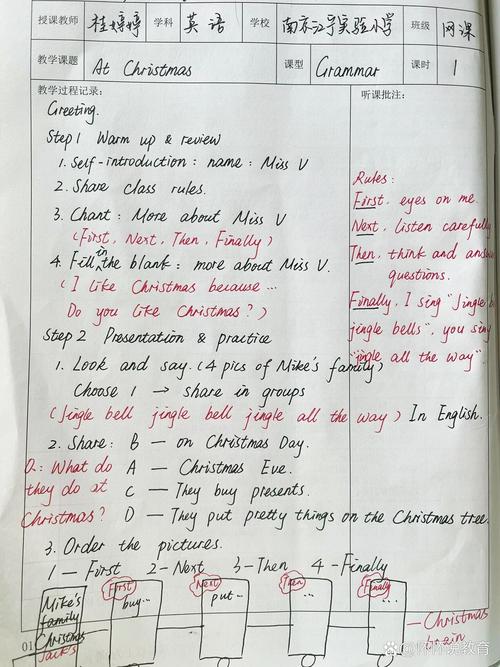 授课教师 桂婷婷 学科 英语 学校 南京江宁实验小学 班级 网课
教学课题 At Christmas 课型 Grammar 课时 1
教学过程记录: 听课批注:
Greeting.
Step 1 Warm up & review
1. Self-introduction: name: Miss V
2. Share class rules.
3. Chant: More about Miss V
(First, Next, Then, Finally)
4. Fill in the blank: more about Miss V.
(I like Christmas because ...
Do you like Christmas?)
Rules:
First, eyes on me.
Next, listen carefully
Then, think and ans
questions.
Finally, I sing "Jingle b
jingle bells", you sing
"jingle all the way".
Step 2 Presentation & practice
1. Look and say. (4 pics of Mike's family)
Choose 1 → share in groups
(Jingle bell jingle bell jingle all the way) In English.
2. Share: B — on Christmas Day.
Q: What do A — Christmas Eve.
they do at C — They buy presents.
Christmas? D — They put pretty things on the Christmas tree.
3. Order the pictures.
1 — First 2 - Next 3 - Then 4 - Finally
Mike's
family
Christmas
Jack's
First
buy...
Next
put...
Then
...
Finally
...
— Christmas
train
01